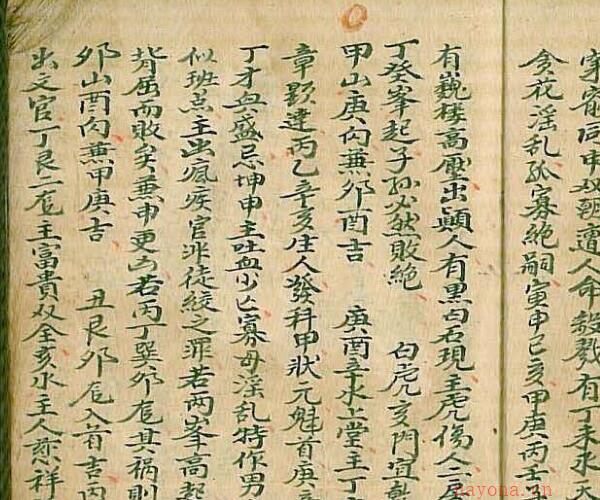 穿竈同申双朝遭人命殺戮有丁未水天
貪花淫乱孤寡絕嗣寅申巳亥甲庚丙壬
有巍樓高壓出顛人有黑白石現主虎傷人二居
丁癸峯起子孫必然敗絕 白虎亥門宜
甲山庚向兼卯酉吉 庚酉辛水上堂主丁
章顕達丙乙辛亥庄人發科甲狀元魁首庚
丁才兴盛忌坤申主吐血少亡寡母淫乱特作男
似班点主出瘋疾官非徒絞之罪若兩峯高起
背屈而敗矣兼申更可若丙丁巽卯危其禍則
卯山酉向兼甲庚吉 丑艮卯危入首吉丙
出文官丁艮一危主富貴双全亥水主人慈祥
nayona.cn